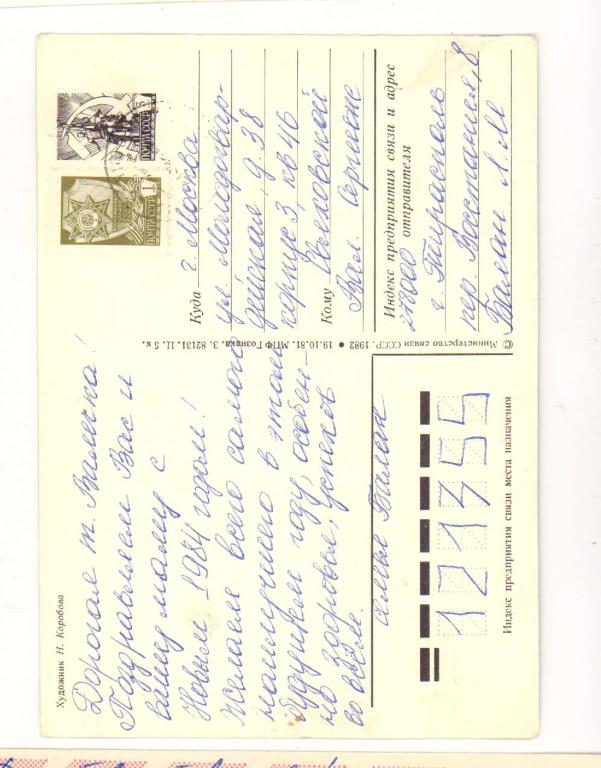 Художник Н. Коробова
Дорогая т. Валечка!
Поздравляем Вас и
вашу маму с
Новым 1984 годом!
Желаем всего самого
наилучшего в этом
будущем году, особен-
но здоровья, успехов
во всём.
Семья Балан
© Министерство связи СССР. 1982 ● 19.10.81. МПФ Гознака. З. 82131. Ц. 5 к.
ПОЧТА СССР
ПОЧТА СССР
Куда г. Москва
ул. Молодогвар-
дейская, д. 38
корпус 3, кв 46
Кому
Вал. Сергеевне
Индекс предприятия связи и адрес
отправителя
278000
г. Тирасполь
пер. Восстания, 8
Балан Л. М
121355
Индекс предприятия связи места назначения